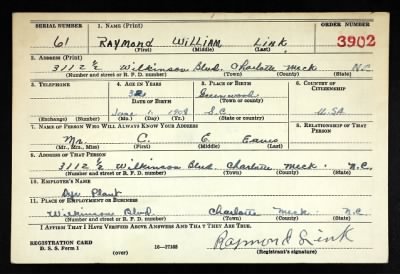 SERIAL NUMBER 1. NAME (Print) ORDER NUMBER
61 RAYMOND WILLIAM LINK 3902
(First) (Middle) (Last)
2. ADDRESS (Print)
3112 ½ Wilkinson Blvd. Charlotte Meck N.C.
(Number and street or R. F. D. number) (Town) (County) (State)
3. TELEPHONE 4. AGE IN YEARS 5. PLACE OF BIRTH 6. COUNTRY OF CITIZENSHIP
Greenwood
DATE OF BIRTH (Town or county)
June 1 1908 S.C. USA
(Exchange) (No.) (Mo.) (Day) (Yr.) (State or country)
7. NAME OF PERSON WHO WILL ALWAYS KNOW YOUR ADDRESS 8. RELATIONSHIP OF THAT PERSON
Mr. C. E. Eaves
(Mr., Mrs., Miss) (First) (Middle) (Last)
9. ADDRESS OF THAT PERSON
3112 ½ Wilkinson Blvd. Charlotte Meck. N.C.
(Number and street or R. F. D. number) (Town) (County) (State)
10. EMPLOYER'S NAME
Dye Plant
11. PLACE OF EMPLOYMENT OR BUSINESS
Wilkinson Blvd Charlotte Meck. N.C
(Number and street or R. F. D. number) (Town) (County) (State)
I AFFIRM THAT I HAVE VERIFIED ABOVE ANSWERS AND THAT THEY ARE TRUE.
REGISTRATION CARD
D. S. S. Form 1 (over) 16—17105 Raymond Link
(Registrant's signature)